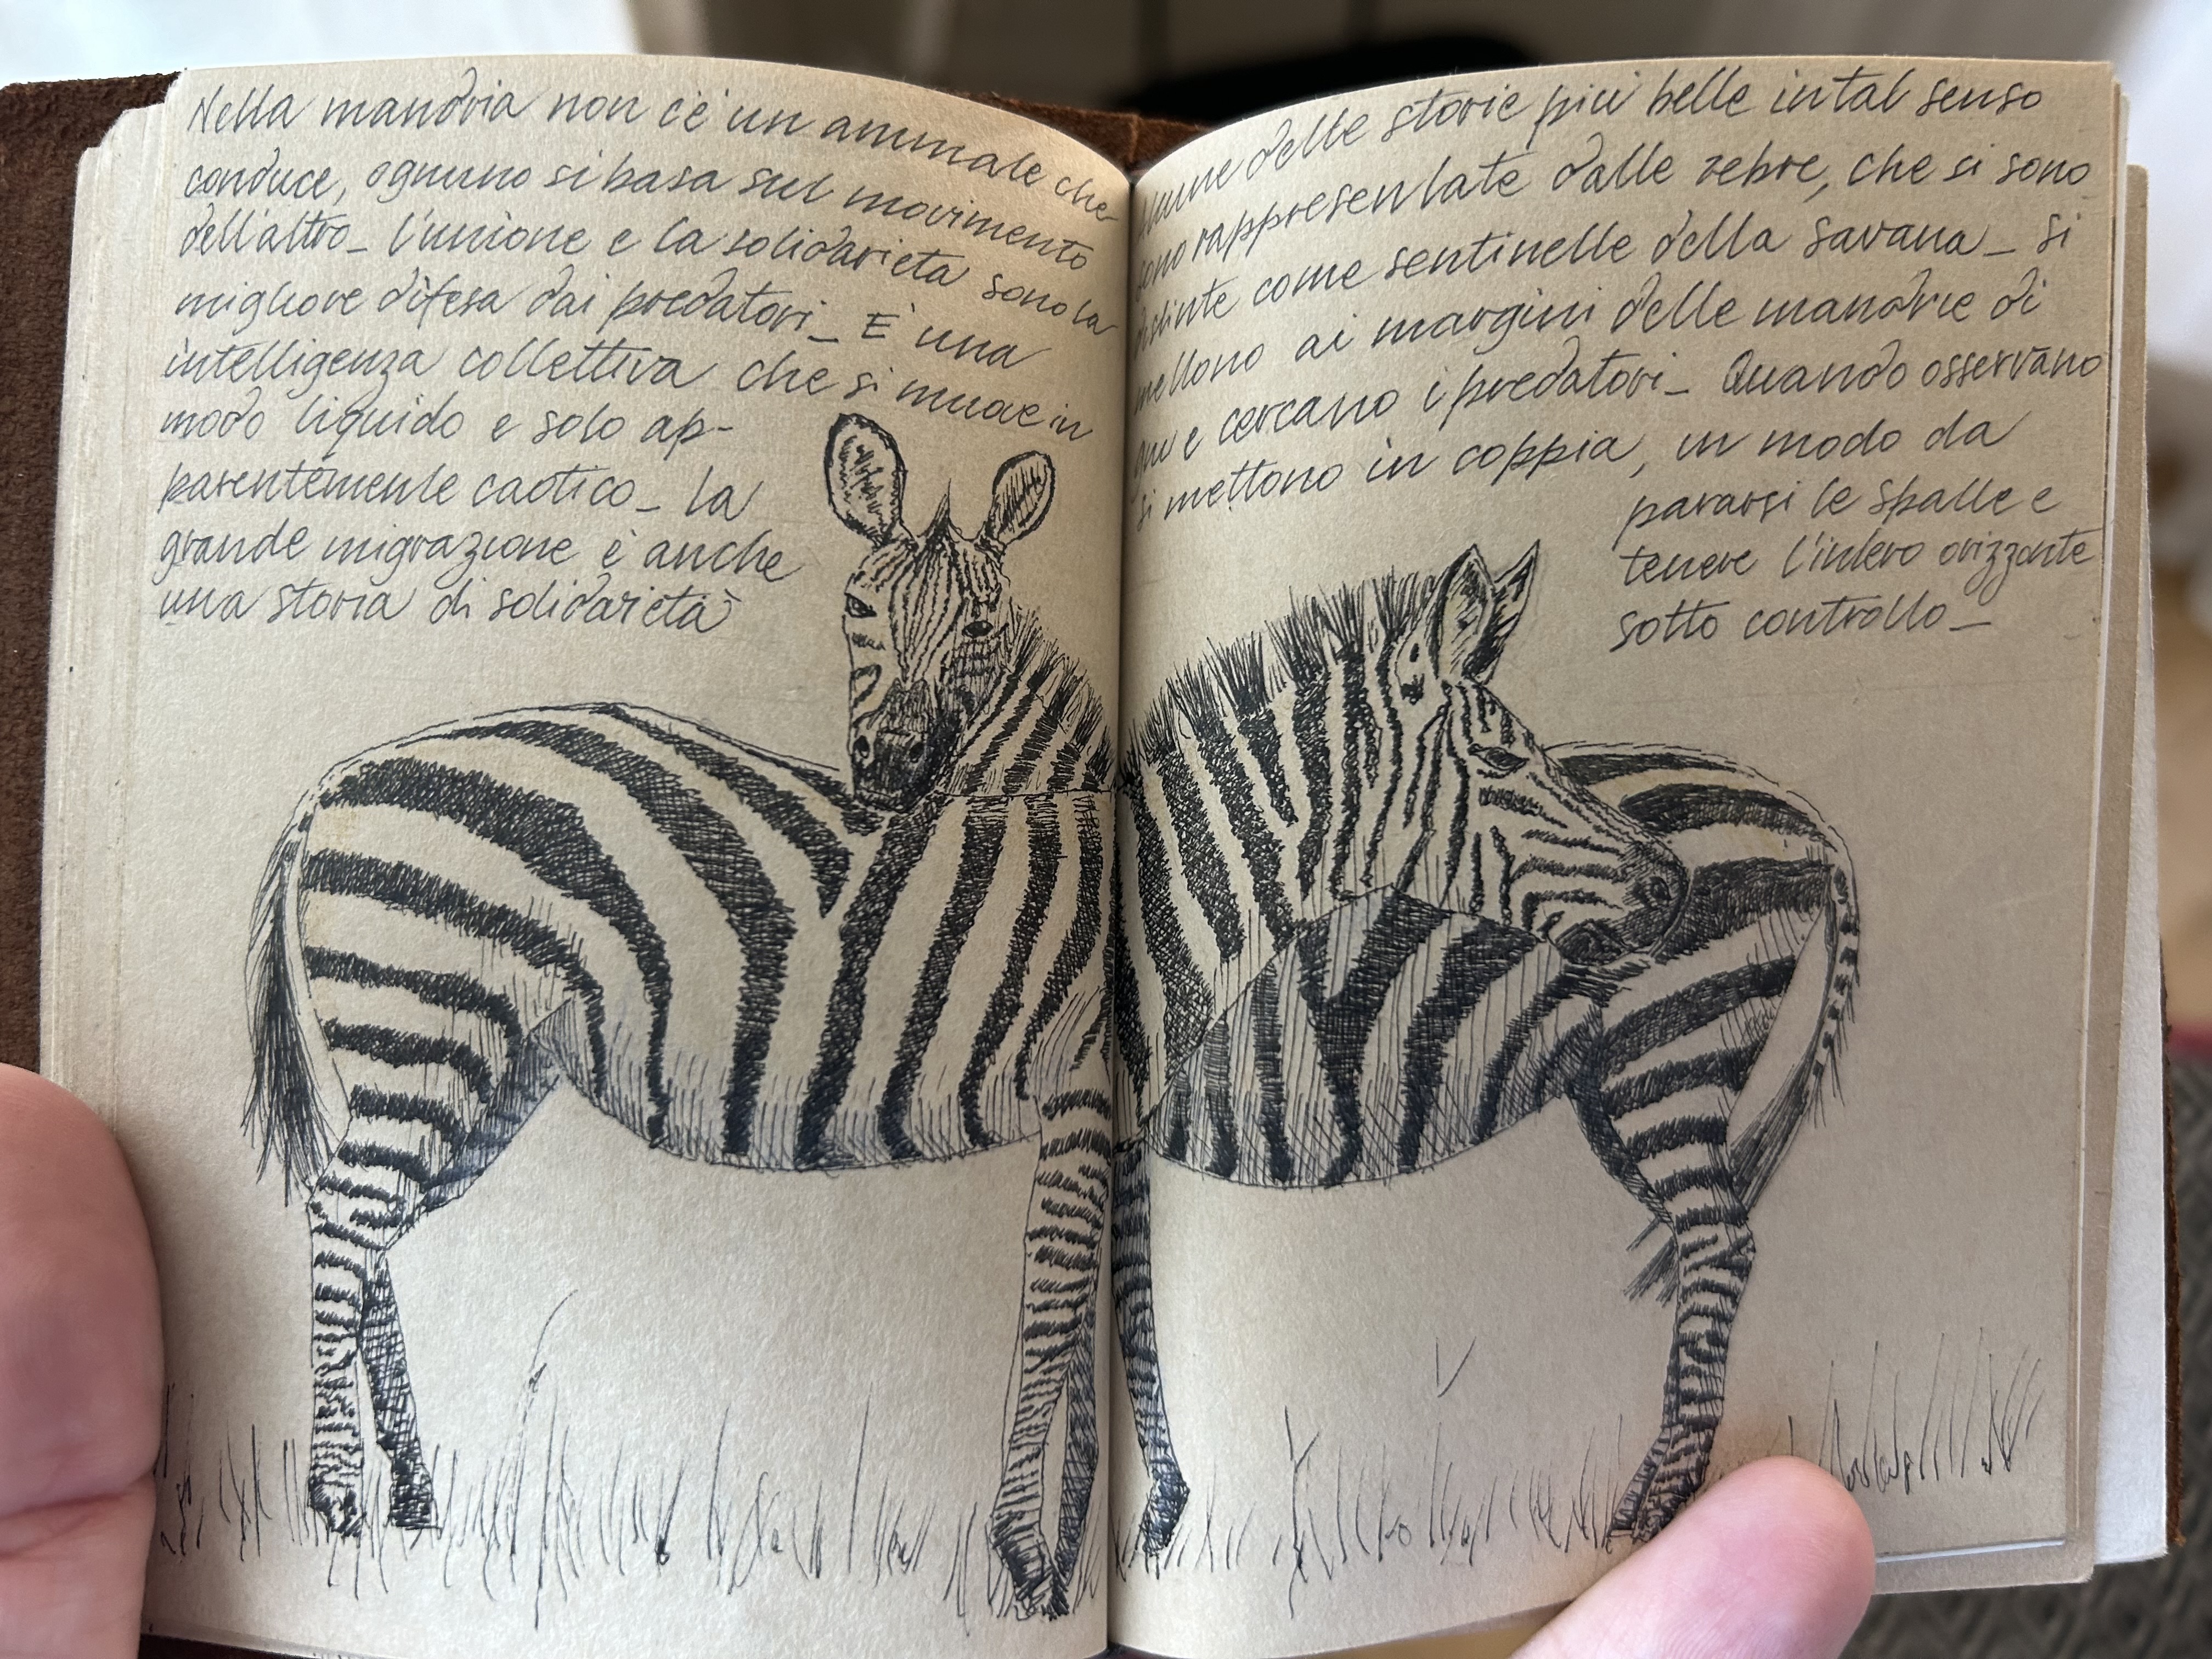 Nella mandria non c'è un animale che
conduce, ognuno si basa sul movimento
dell'altro_ l'unione e la solidarietà sono la
migliore difesa dai predatori_ E' una
intelligenza collettiva che si muove in
modo liquido e solo ap-
parentemente caotico_ la
grande migrazione è anche
una storia di solidarietà
Alcune delle storie più belle in tal senso
sono rappresentate dalle zebre, che si sono
distinte come sentinelle della savana_ si
mettono ai margini delle mandrie di
e cercano i predatori_ Quando osservano
si mettono in coppia, in modo da
pararsi le spalle e
tenere l'intero orizzonte
sotto controllo_